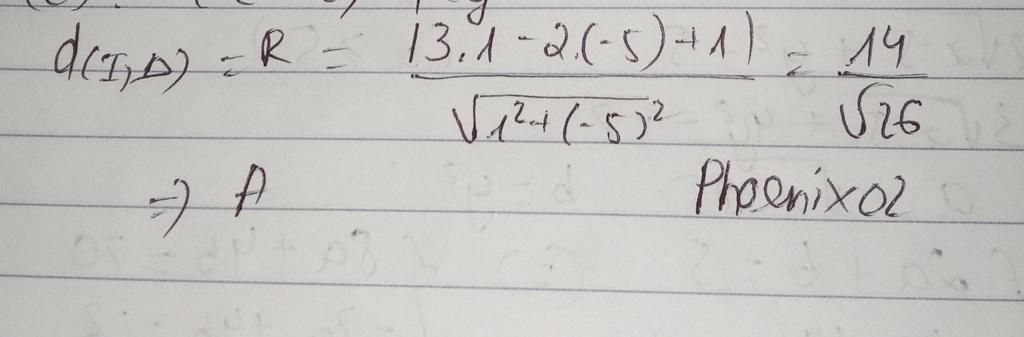 d(I,Δ) = R = |3.1 - 2.(-5) + 1| / √1² + (-5)² = 14 / √26
=> A Phoenix02